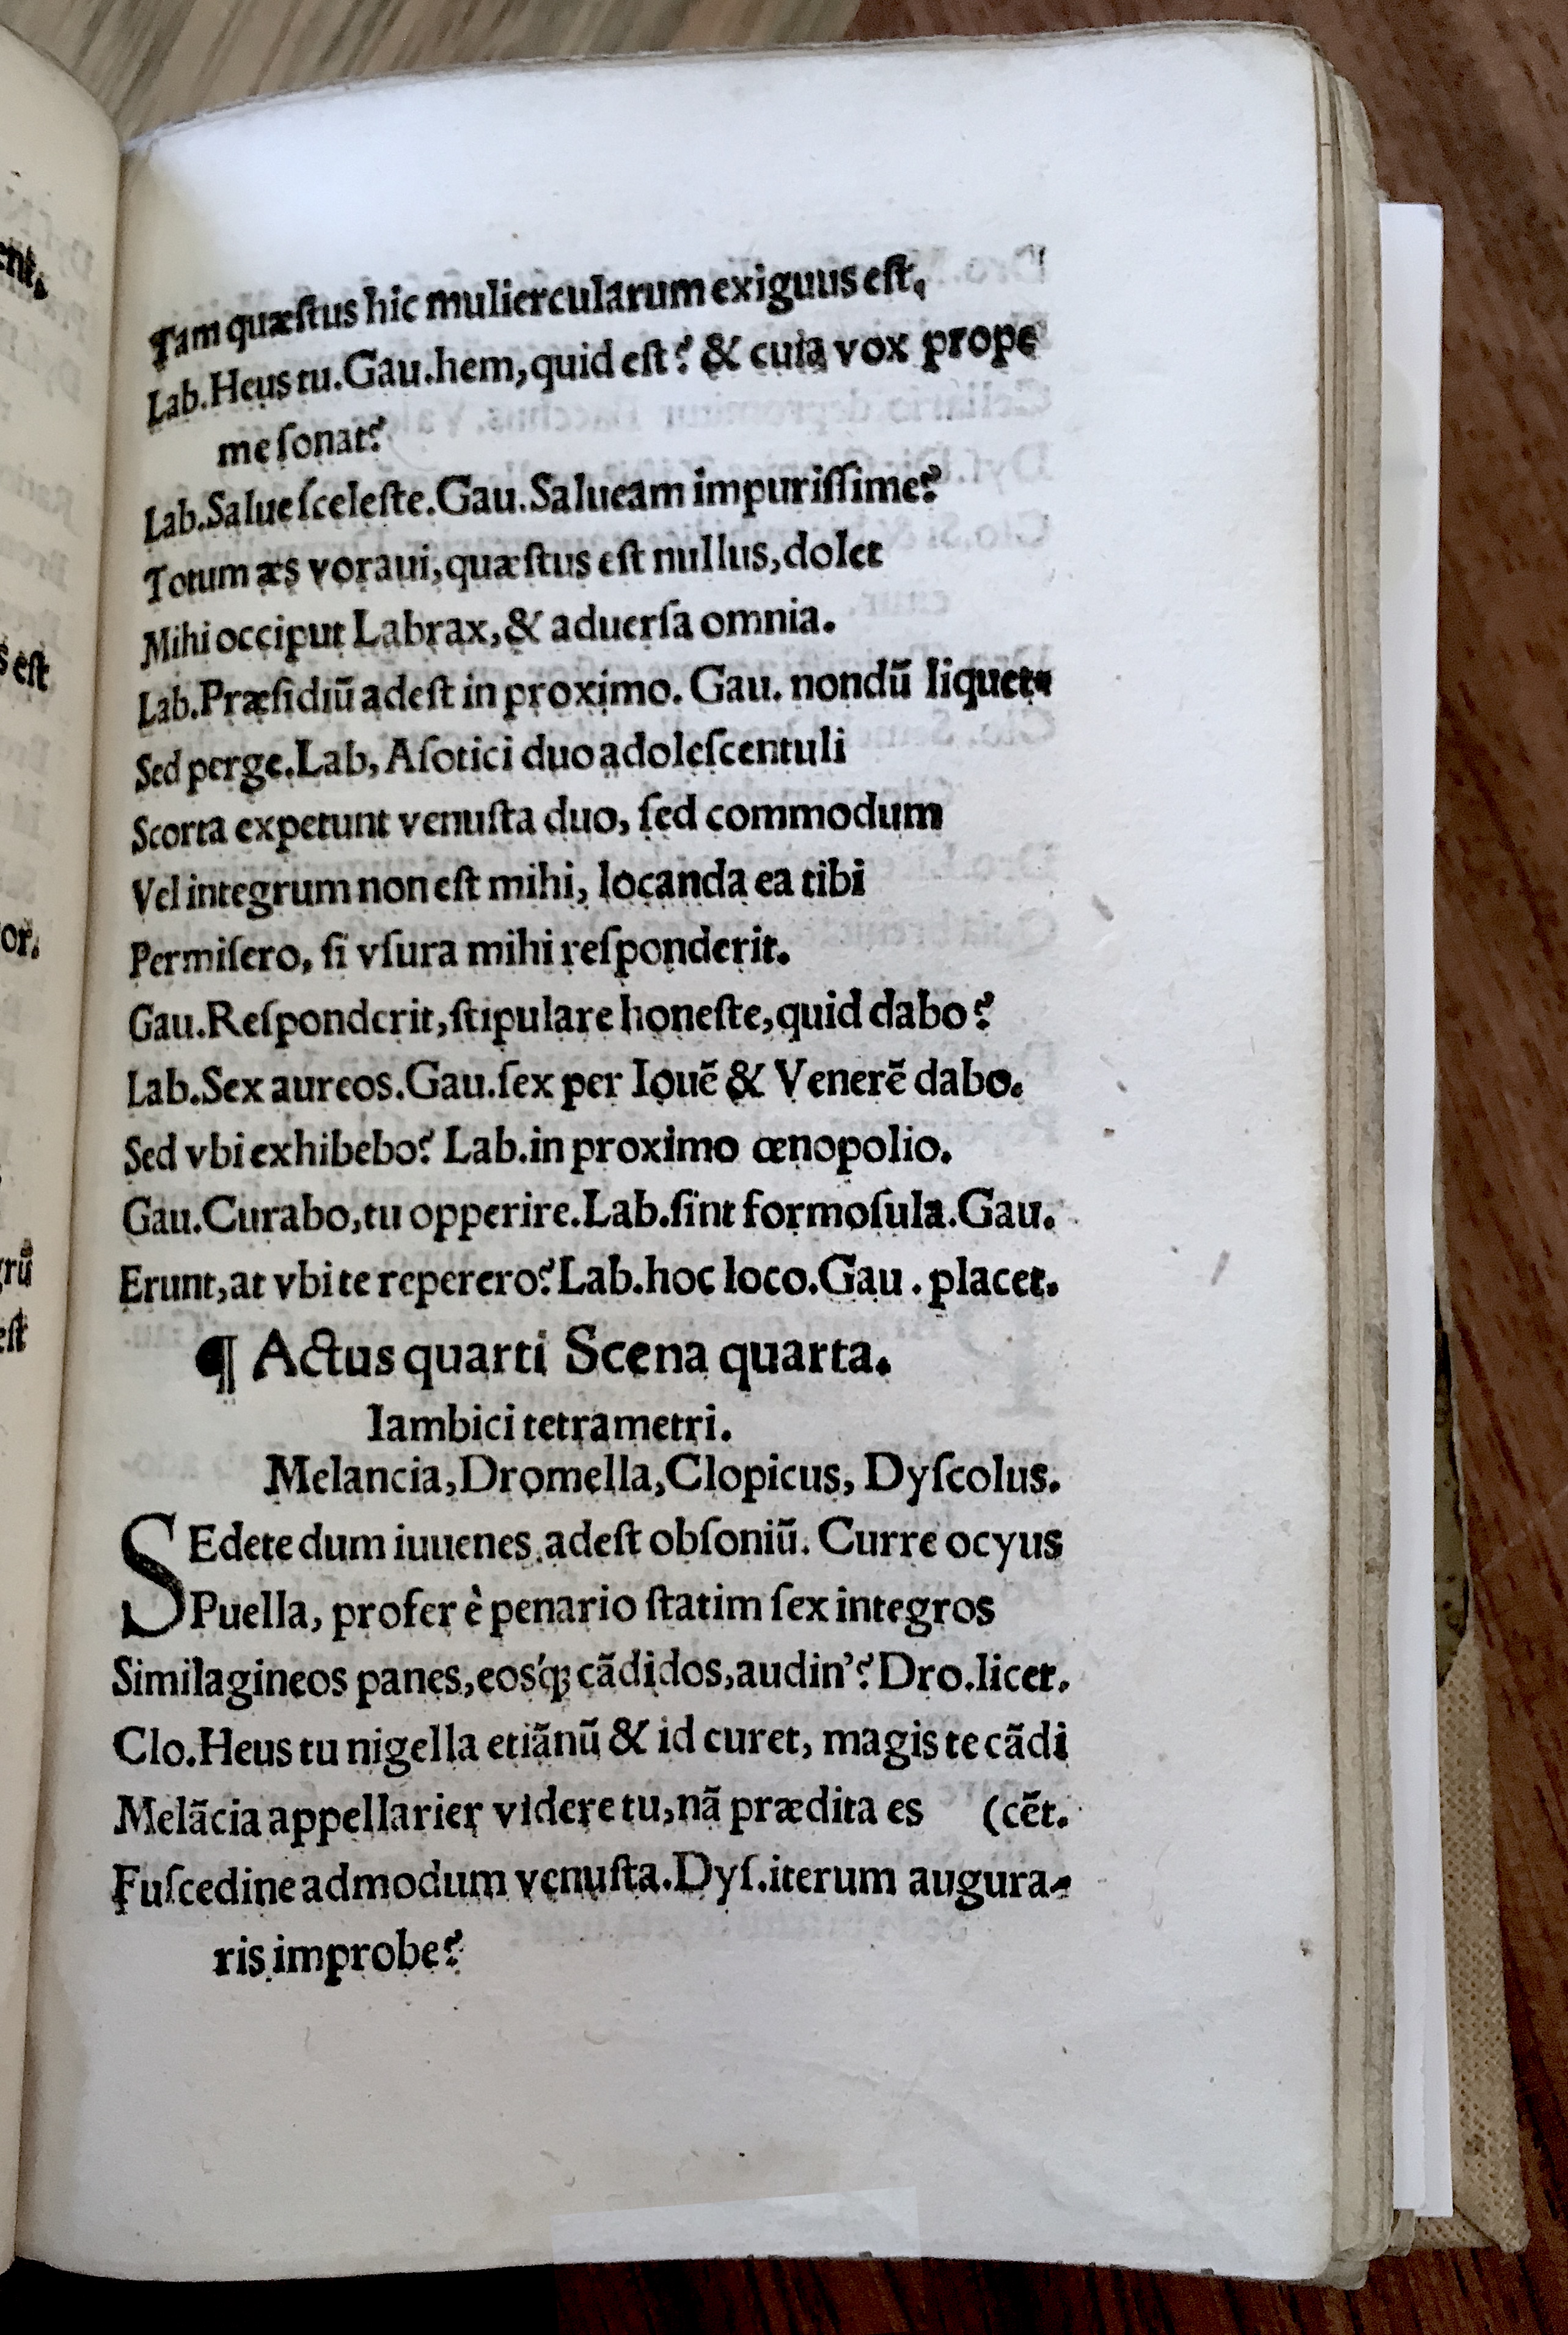 Tam quæſtus hic muliercularum exiguus eſt,
Lab.Heus tu.Gau.hem,quid eſt? & cuia vox prope
me ſonat?
Lab.Salue ſceleſte.Gau.Salueam impuriſſime?
Totum æs voraui,quæſtus eſt nullus,dolet
Mihi occiput Labrax,& aduerſa omnia.
Lab.Præſidiū adeſt in proximo. Gau. nondū liquet.
Sed perge.Lab, Aſotici duo adoleſcentuli
Scorta expetunt venuſta duo, ſed commodum
Vel integrum non eſt mihi, locanda ea tibi
Permiſero, ſi vſura mihi reſponderit.
Gau.Reſponderit,ſtipulare honeſte,quid dabo?
Lab.Sex aureos.Gau.ſex per Iouē & Venerē dabo.
Sed vbi exhibebo? Lab.in proximo œnopolio.
Gau.Curabo,tu opperire.Lab.ſint formoſula.Gau.
Erunt,at vbi te reperero?Lab.hoc loco.Gau . placet.
¶ Actus quarti Scena quarta.
Iambici tetrametri.
Melancia,Dromella,Clopicus, Dyſcolus.
SEdete dum iuuenes.adeſt obſoniū. Curre ocyus
Puella, profer è penario ſtatim ſex integros
Similagineos panes,eosq́ꝫ cādidos,audin'?Dro.licet.
Clo.Heus tu nigella etiānū & id curet, magis te cādi
Melācia appellarier videre tu,nā prædita es (cēt.
Fuſcedine admodum venuſta.Dyſ.iterum augura-
ris improbe?
ent,
s eſt
or.
rū
eſt